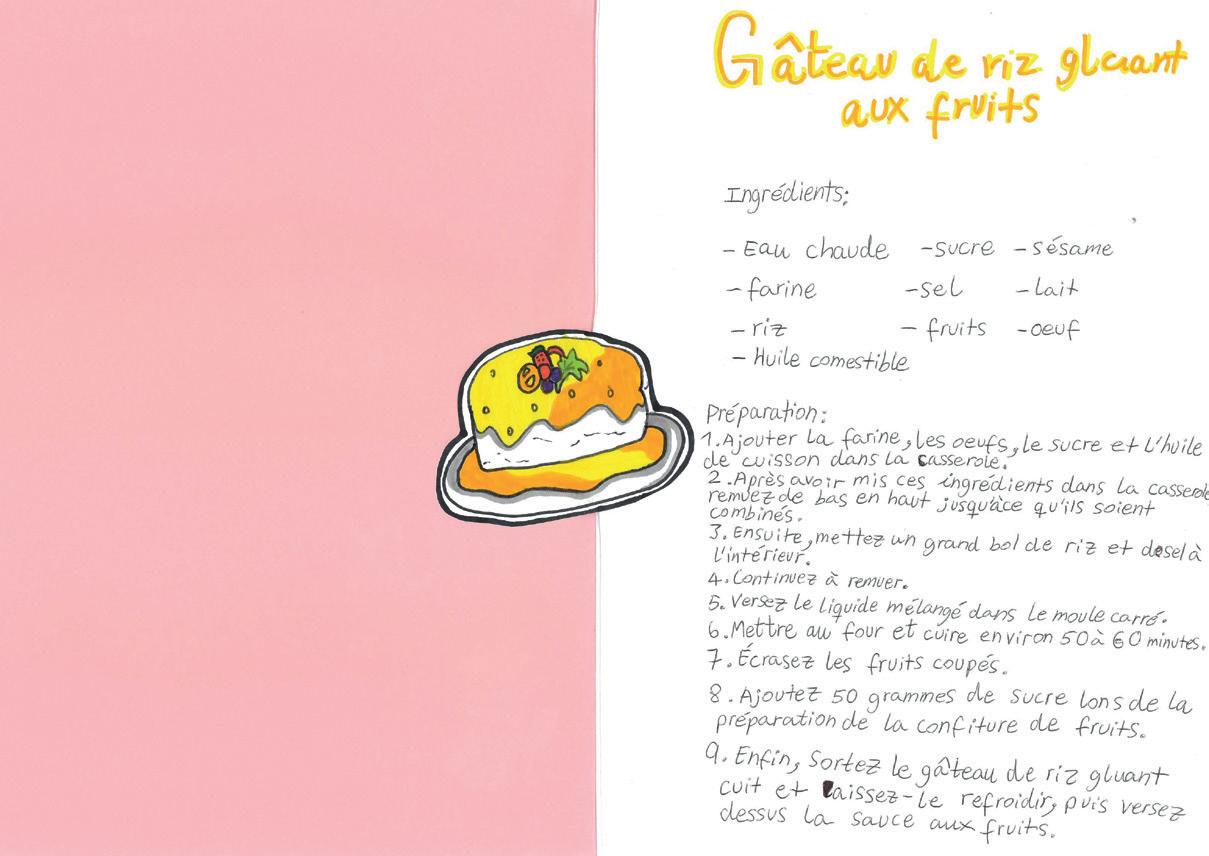 Gâteau de riz gluant
aux fruits
Ingrédients:
- Eau chaude - sucre - sésame
- farine - sel - lait
- riz - fruits - oeuf
- Huile comestible
Préparation:
1. Ajouter la farine, les oeufs, le sucre et l'huile
de cuisson dans la casserole.
2. Après avoir mis ces ingrédients dans la casserole
remuez de bas en haut jusqu'àce qu'ils soient
combinés.
3. Ensuite, mettez un grand bol de riz et desel à
l'intérieur.
4. Continuez à remuer.
5. Versez le liquide mélangé dans le moule carré.
6. Mettre au four et cuire environ 50 à 60 minutes.
7. Écrasez les fruits coupés.
8. Ajoutez 50 grammes de sucre lons de la
préparation de la confiture de fruits.
9. Enfin, Sortez le gâteau de riz gluant
cuit et laissez-le refroidir, puis versez
dessus la sauce aux fruits.